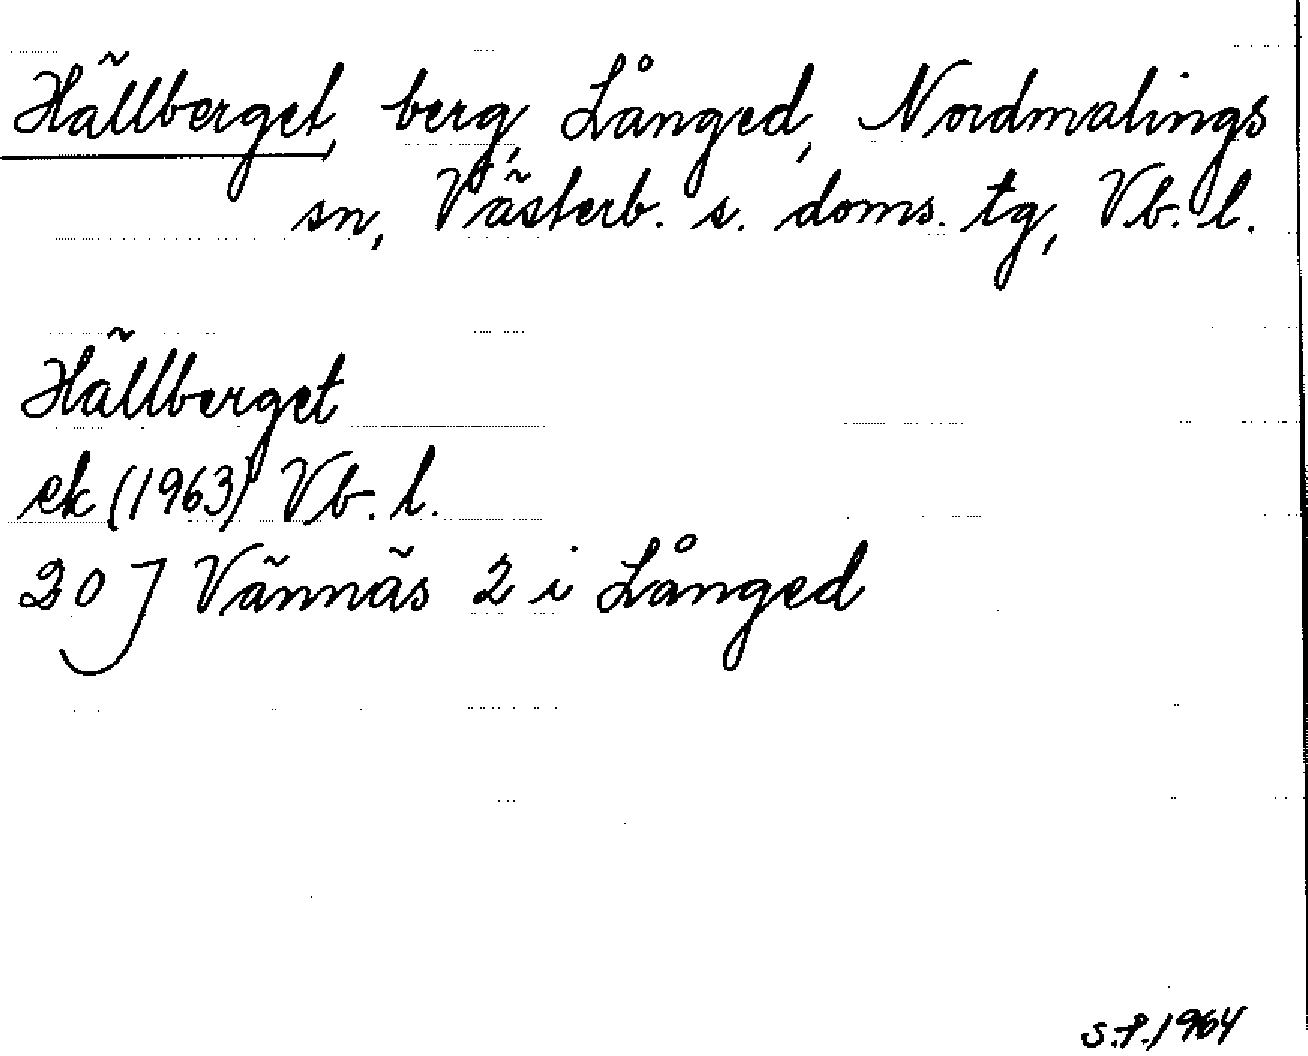 Hällberget, berg, Långed, Nordmalings
sn, Västerb. s. doms. tg, Vb. l.
Hällberget
ek (1963) Vb. l.
20 J Vännäs 2 i Långed
S.P. 1964